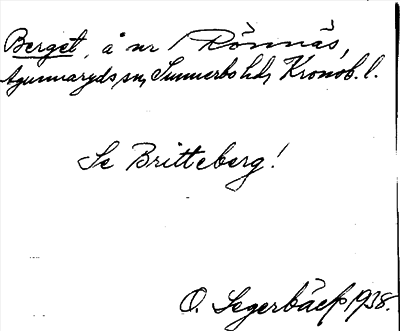 Berget, å nr 1 Rönnäs,
Agunnaryds sn, Sunnerbo hd, Kronob. l.
Se Britteberg!
O. Segerbäck 1938.